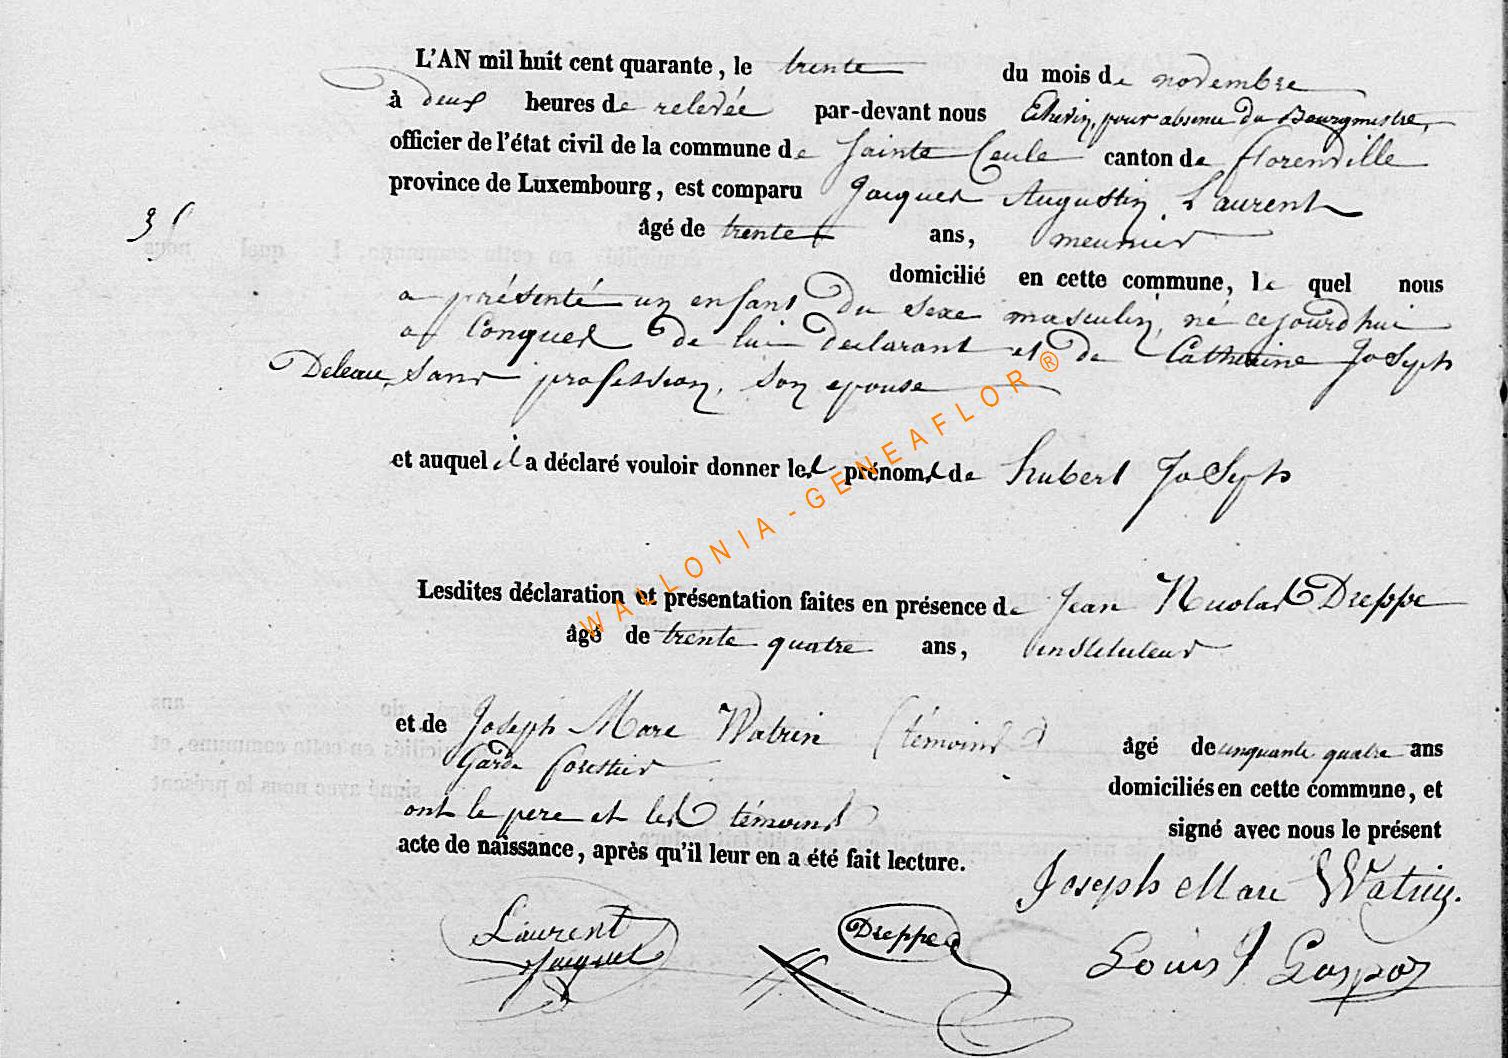 L'AN mil huit cent quarante, le trente du mois de novembre
à deux heures de relevée par-devant nous Echevin, pour absence du Bourgmestre,
officier de l'état civil de la commune de Sainte Cecile canton de florenville
province de Luxembourg, est comparu Jacques Augustin Laurent
âgé de trente ans, meunier
domicilié en cette commune, le quel nous
a présenté un enfant du sexe masculin, né cejourd'hui
a Conques de lui declarant et de Catherine Joseph
Deleau, sans profession, son epouse
et auquel il a déclaré vouloir donner les prénoms de hubert Joseph
Lesdites déclaration et présentation faites en présence de Jean Nicolas Dreppe
âgé de trente quatre ans, instituteur
et de Joseph Marc Watrin (témoins) âgé de cinquante quatre ans
Garde forestier domiciliés en cette commune, et
ont le pere et les témoins signé avec nous le présent
acte de naissance, après qu'il leur en a été fait lecture.
Joseph Marc Watrin.
Laurent Dreppe
Jacques Louis J Gaspar
WALLONIA - GENEAFLOR ®